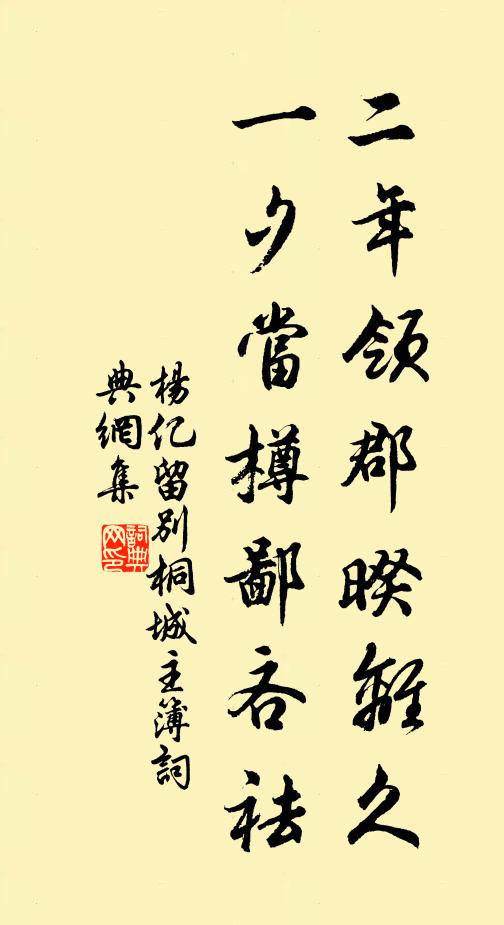 二年領郡暌離久
一夕當樽鄙吝祛
楊亿留別桐城主簿詞
典網集
詞典
网印